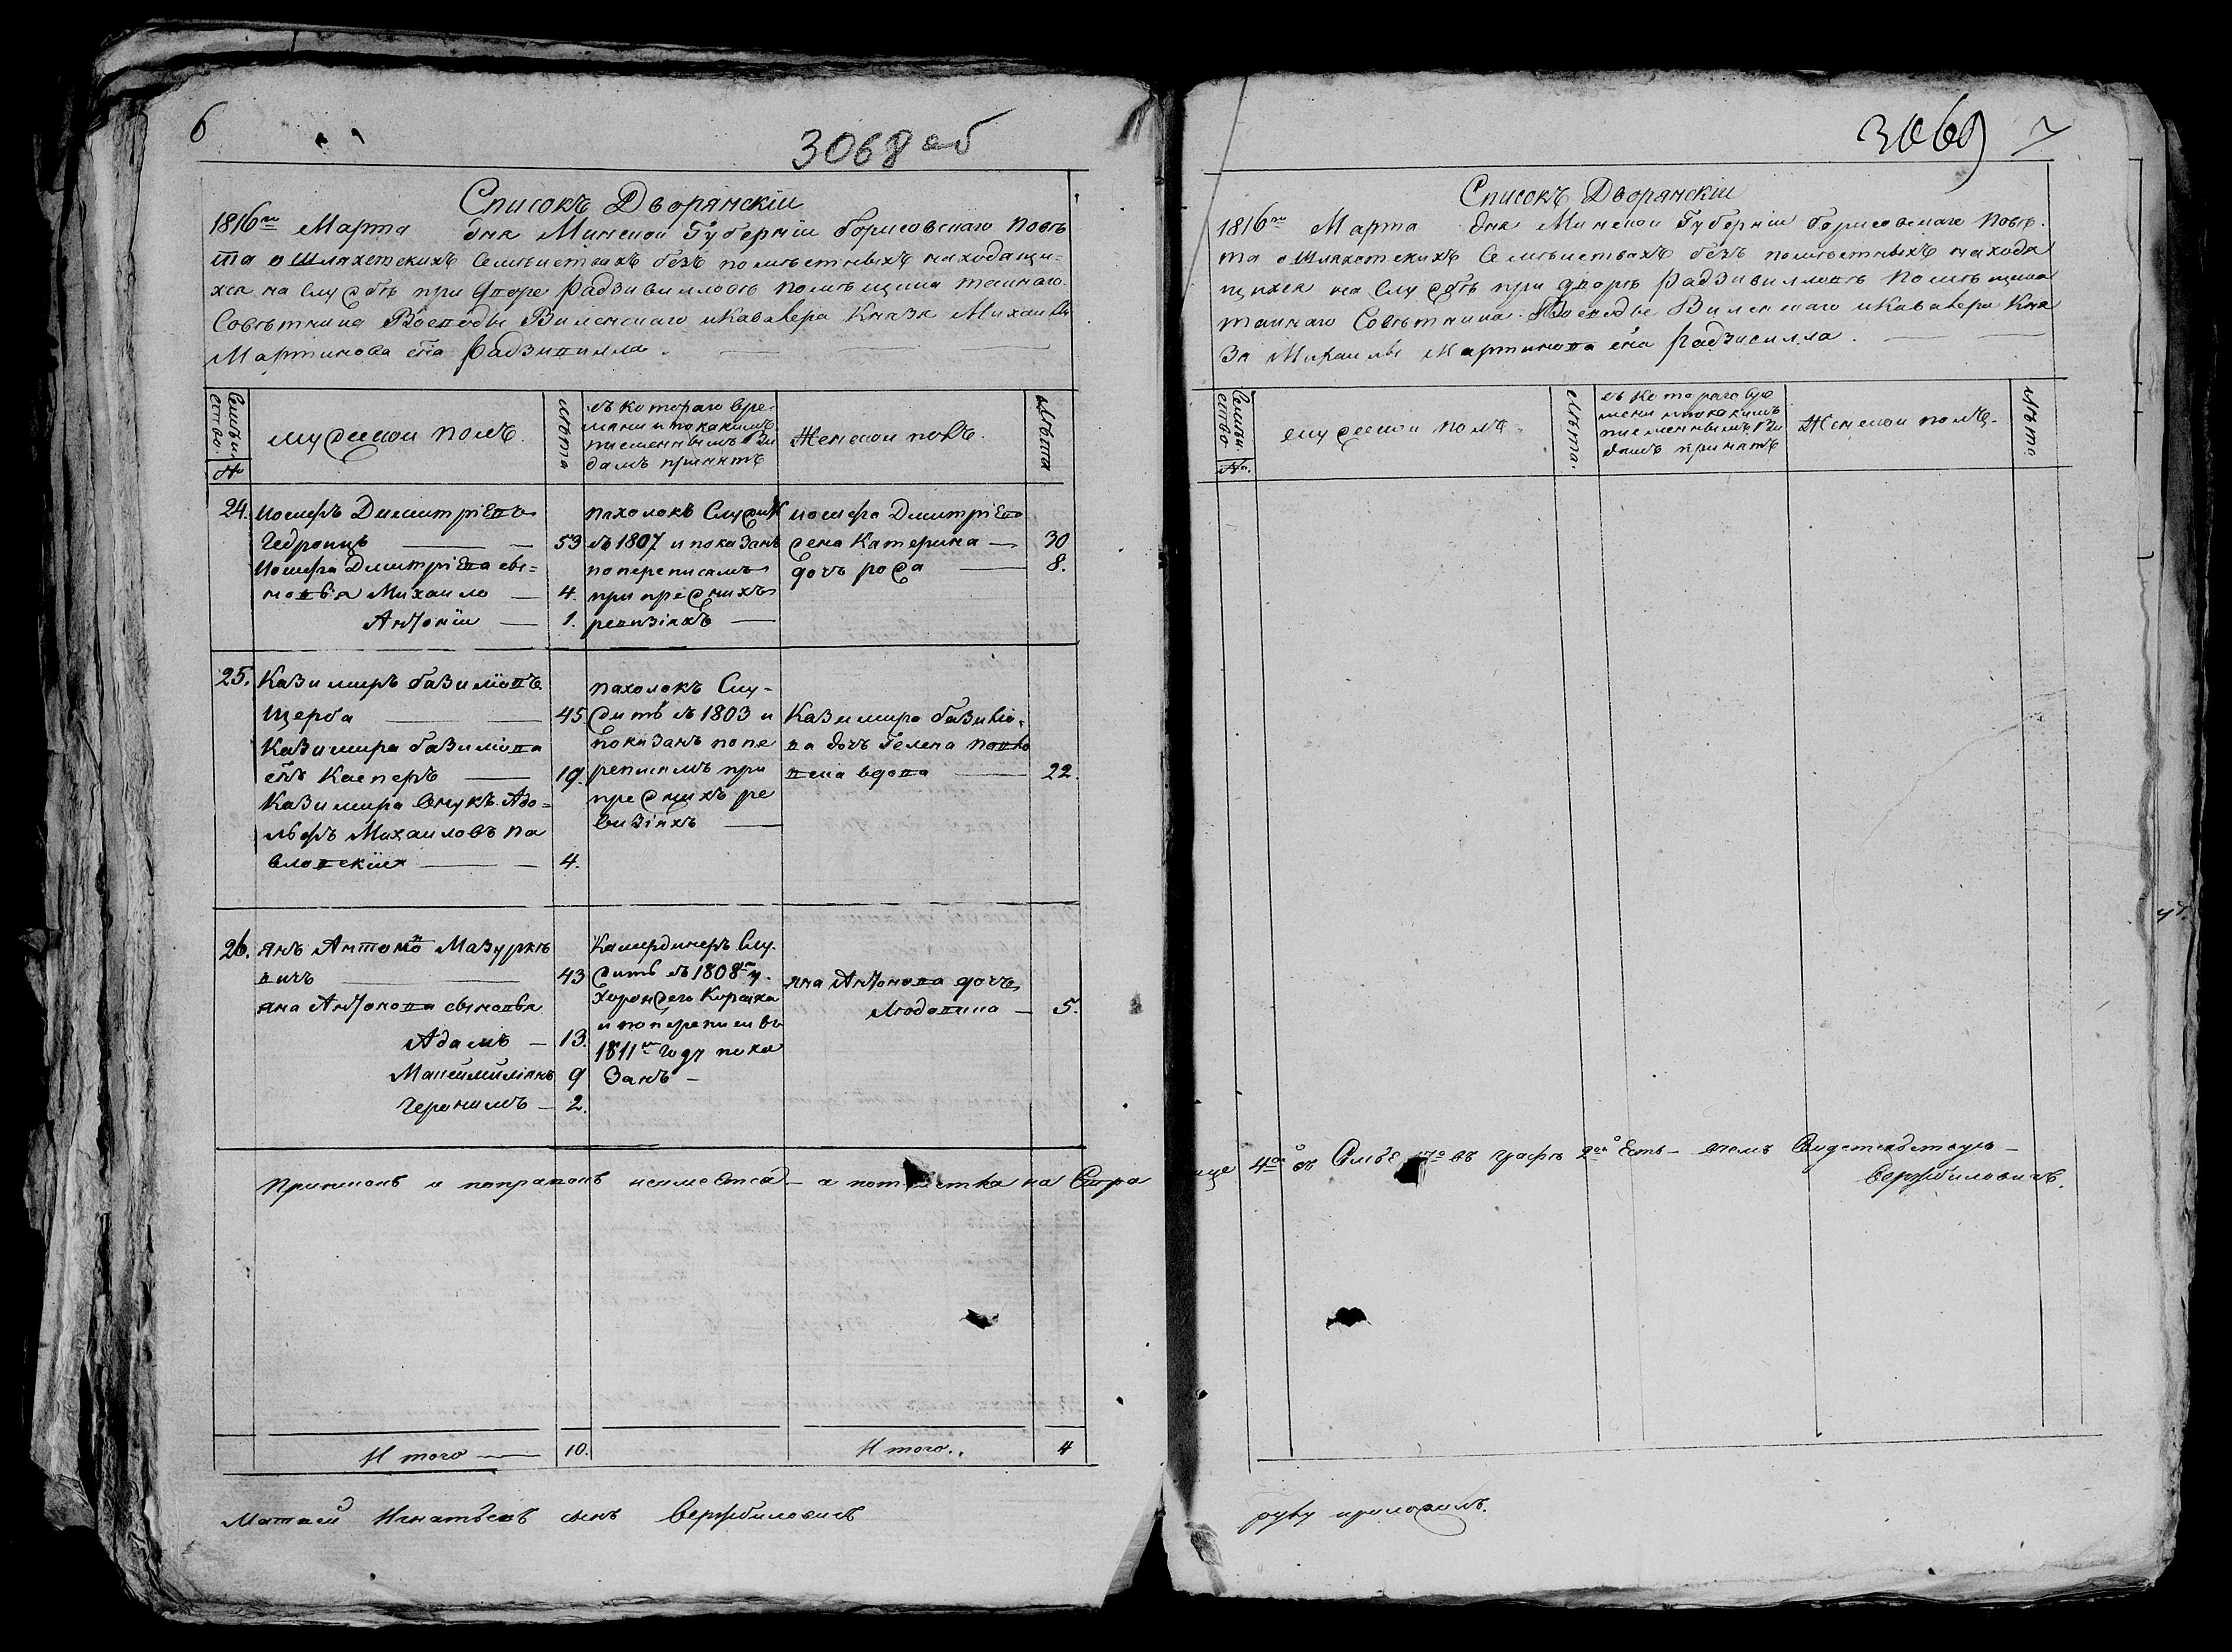 6
3068 об
Списокъ Дворянскіи
1816го Марта дня Минской Губерніи Борисовскаго Повѣ
та о Шляхетскихъ Семѣиствахъ безъ помѣстныхъ находящи=
хся на Службѣ при дворе Радзивилловѣ Помѣщика таинаго
Совѣтника Воеводы Виленскаго икавалера Князя Михаила
Мартинова сна Радзивилла.
Семѣи
ство.
№
мужеской полъ.
лѣта
съ котораго вре-
мени и по какимъ
писменнымъ Ви
дамъ принятъ
Женской полъ.
Лѣта
24. Іосифъ Димитріевъ
Гедроицъ 53
Іосифа Димитріева сы=
новья Михаило 4.
Антоніи 1.
пахолокъ Служитъ
съ 1807 и показанъ
попереписямъ
при прежнихъ
ревизіяхъ
Іосифа Димитріева
жена Катерина 30
дочь рожа 8.
25. Казимиръ базиліовъ
Щерба 45
Казимира базиліова
снъ Касперъ 19.
Казимира внукъ Адо=
льфъ Михаиловъ Па
вловскіи 4.
пахолокъ Слу-
житъ съ 1803 и
показанъ попе
реписямъ при
прежнихъ ре
визіяхъ
Казимира базиліо-
ва дочь Гелена павло
вска вдова 22.
26. янъ Антоновъ Мазурке
вичъ 43
яна Антонова сыновья
Адамъ 13.
Максимиліянъ 9
Геронимъ 2.
Камердинеръ Слу-
житъ съ 1808го у
и попереписи въ
1811мъ Году пока
Занъ
яна Антонова дочь
Людовика 5.
Приписокъ и поправокъ неимеется а на Стра
Итого 10.
Итого. 4
Матвей Игнатьевъ сынъ Вержбиловичъ
3069 7
Списокъ Дворянскіи
1816го Марта дня Минской Губерніи Борисовскаго Повѣ-
та о Шляхетскихъ Семѣиствахъ безъ помѣстныхъ находя
щихся на Службѣ при дворѣ Радзивилловѣ Помѣщика
таинаго Совѣтника Воеводы Виленскаго икавалера Кня
Зя Михаилы Мартинова сна Радзивилла.
Семѣи
ство.
№.
мужеской полъ.
лѣта.
съ котораго вре
мени ипокакимъ
писменнымъ Ви
дамъ принятъ
Женской полъ.
лѣта.
ице 4ой въ въ графѣ 2ой Есть въ томъ Свидетельствую
Вержбиловичъ.
руку приложилъ.